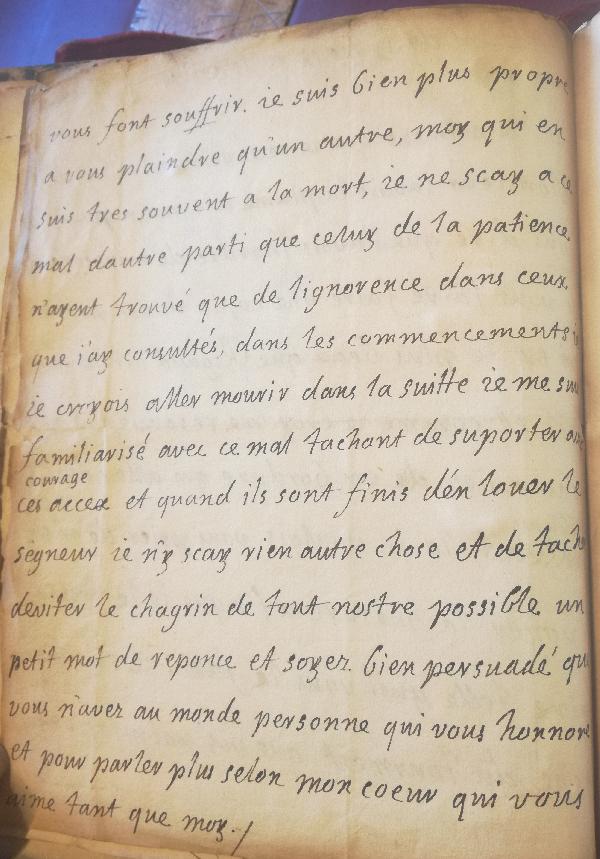 vous font souffrir. ie suis bien plus propre
a vous plaindre qu'un autre, moy qui en
suis tres souvent a la mort, ie ne scay a ce
mal dautre parti que celuy de la patience
n'ayent trouvé que de lignorence dans ceux
que i'ay consultés, dans les commencements i
ie croyois aller mourir dans la suitte ie me sui
familiarisé avec ce mal tachant de suporter
courage
ces acces et quand ils sont finis dén louer le
seigneur ie n'y scay rien autre chose et de tach
deviter le chagrin de tout nostre possible un
petit mot de reponce et soyez bien persuadé qu
vous n'avez au monde personne qui vous honnor
et pour parler plus selon mon coeur qui vous
aime tant que moy./